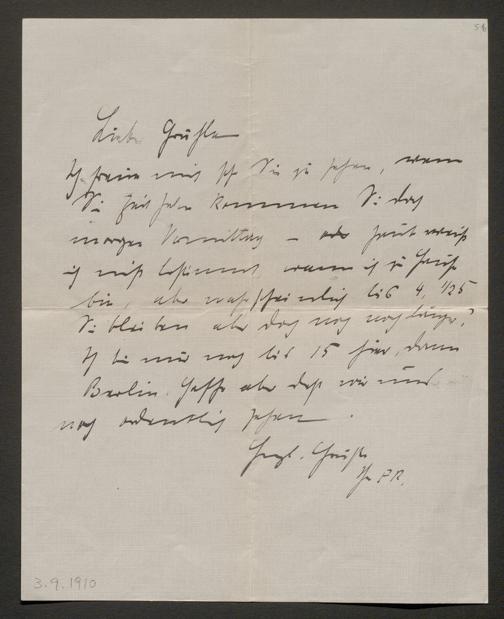 56
Lieber Gruhle
Ich freue mich sehr Sie zu sehen, wenn
Sie Zeit haben kommen Sie doch
morgen Vormittag – oder heut weiß
ich nicht bestimmt, wann ich zu Hause
bin, aber wahrscheinlich bis 4, 1/25
Sie bleiben aber doch noch noch länger?
Ich bin nur noch bis 15 hier, dann
Berlin. Hoffe aber daß wir uns
noch ordentlich sehen.
Herzl. Grüße
Ihr PR.
3.9.1910